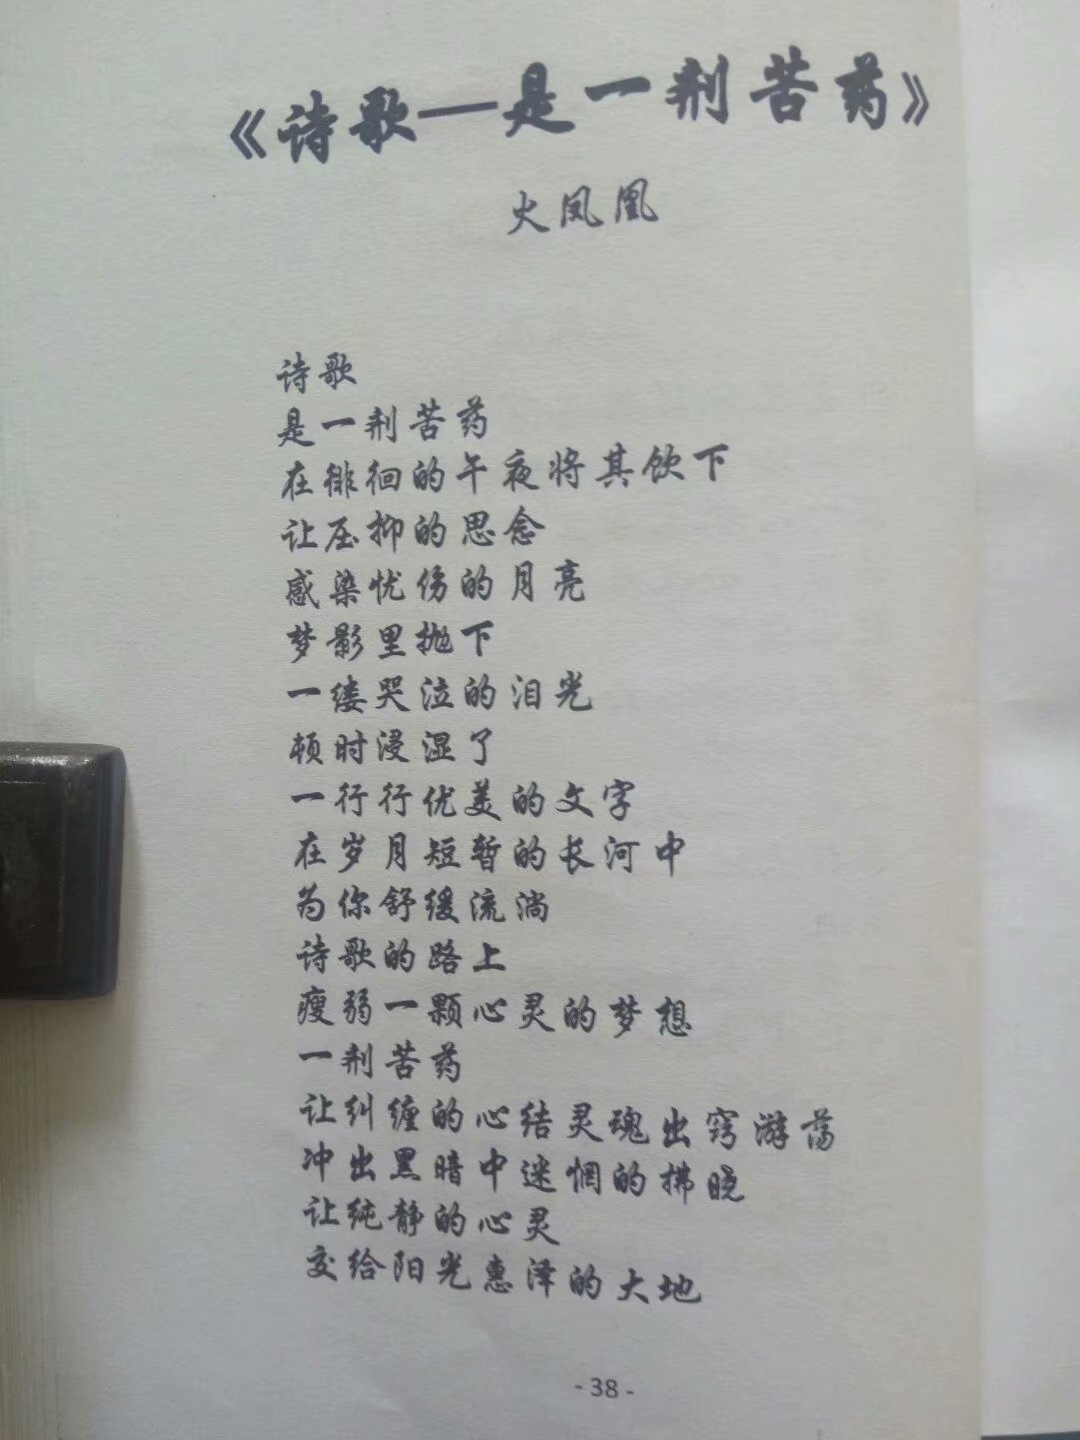 《诗歌—是一剂苦药》
火凤凰
诗歌
是一剂苦药
在徘徊的午夜将其饮下
让压抑的思念
感染忧伤的月亮
梦影里抛下
一缕哭泣的泪光
顿时浸湿了
一行行优美的文字
在岁月短暂的长河中
为你舒缓流淌
诗歌的路上
瘦弱一颗心灵的梦想
一剂苦药
让纠缠的心结灵魂出窍游荡
冲出黑暗中迷惘的拂晓
让纯静的心灵
交给阳光惠泽的大地
- 38 -